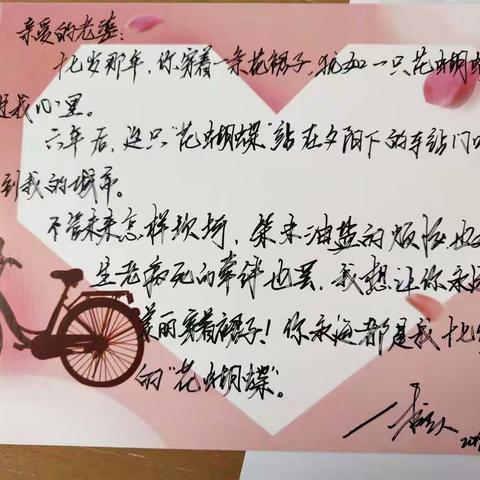 亲爱的老婆：
十七岁那年，你穿着一条花裙子，犹如一只花蝴蝶
进我心里。
六年后，这只“花蝴蝶”站在夕阳下的车站门口
到我的城市。
不管未来怎样坎坷，柴米油盐的烦恼也
生老病死的牵绊也罢，我想让你永远
美丽穿着裙子！你永远都是我十七岁
的“花蝴蝶”。